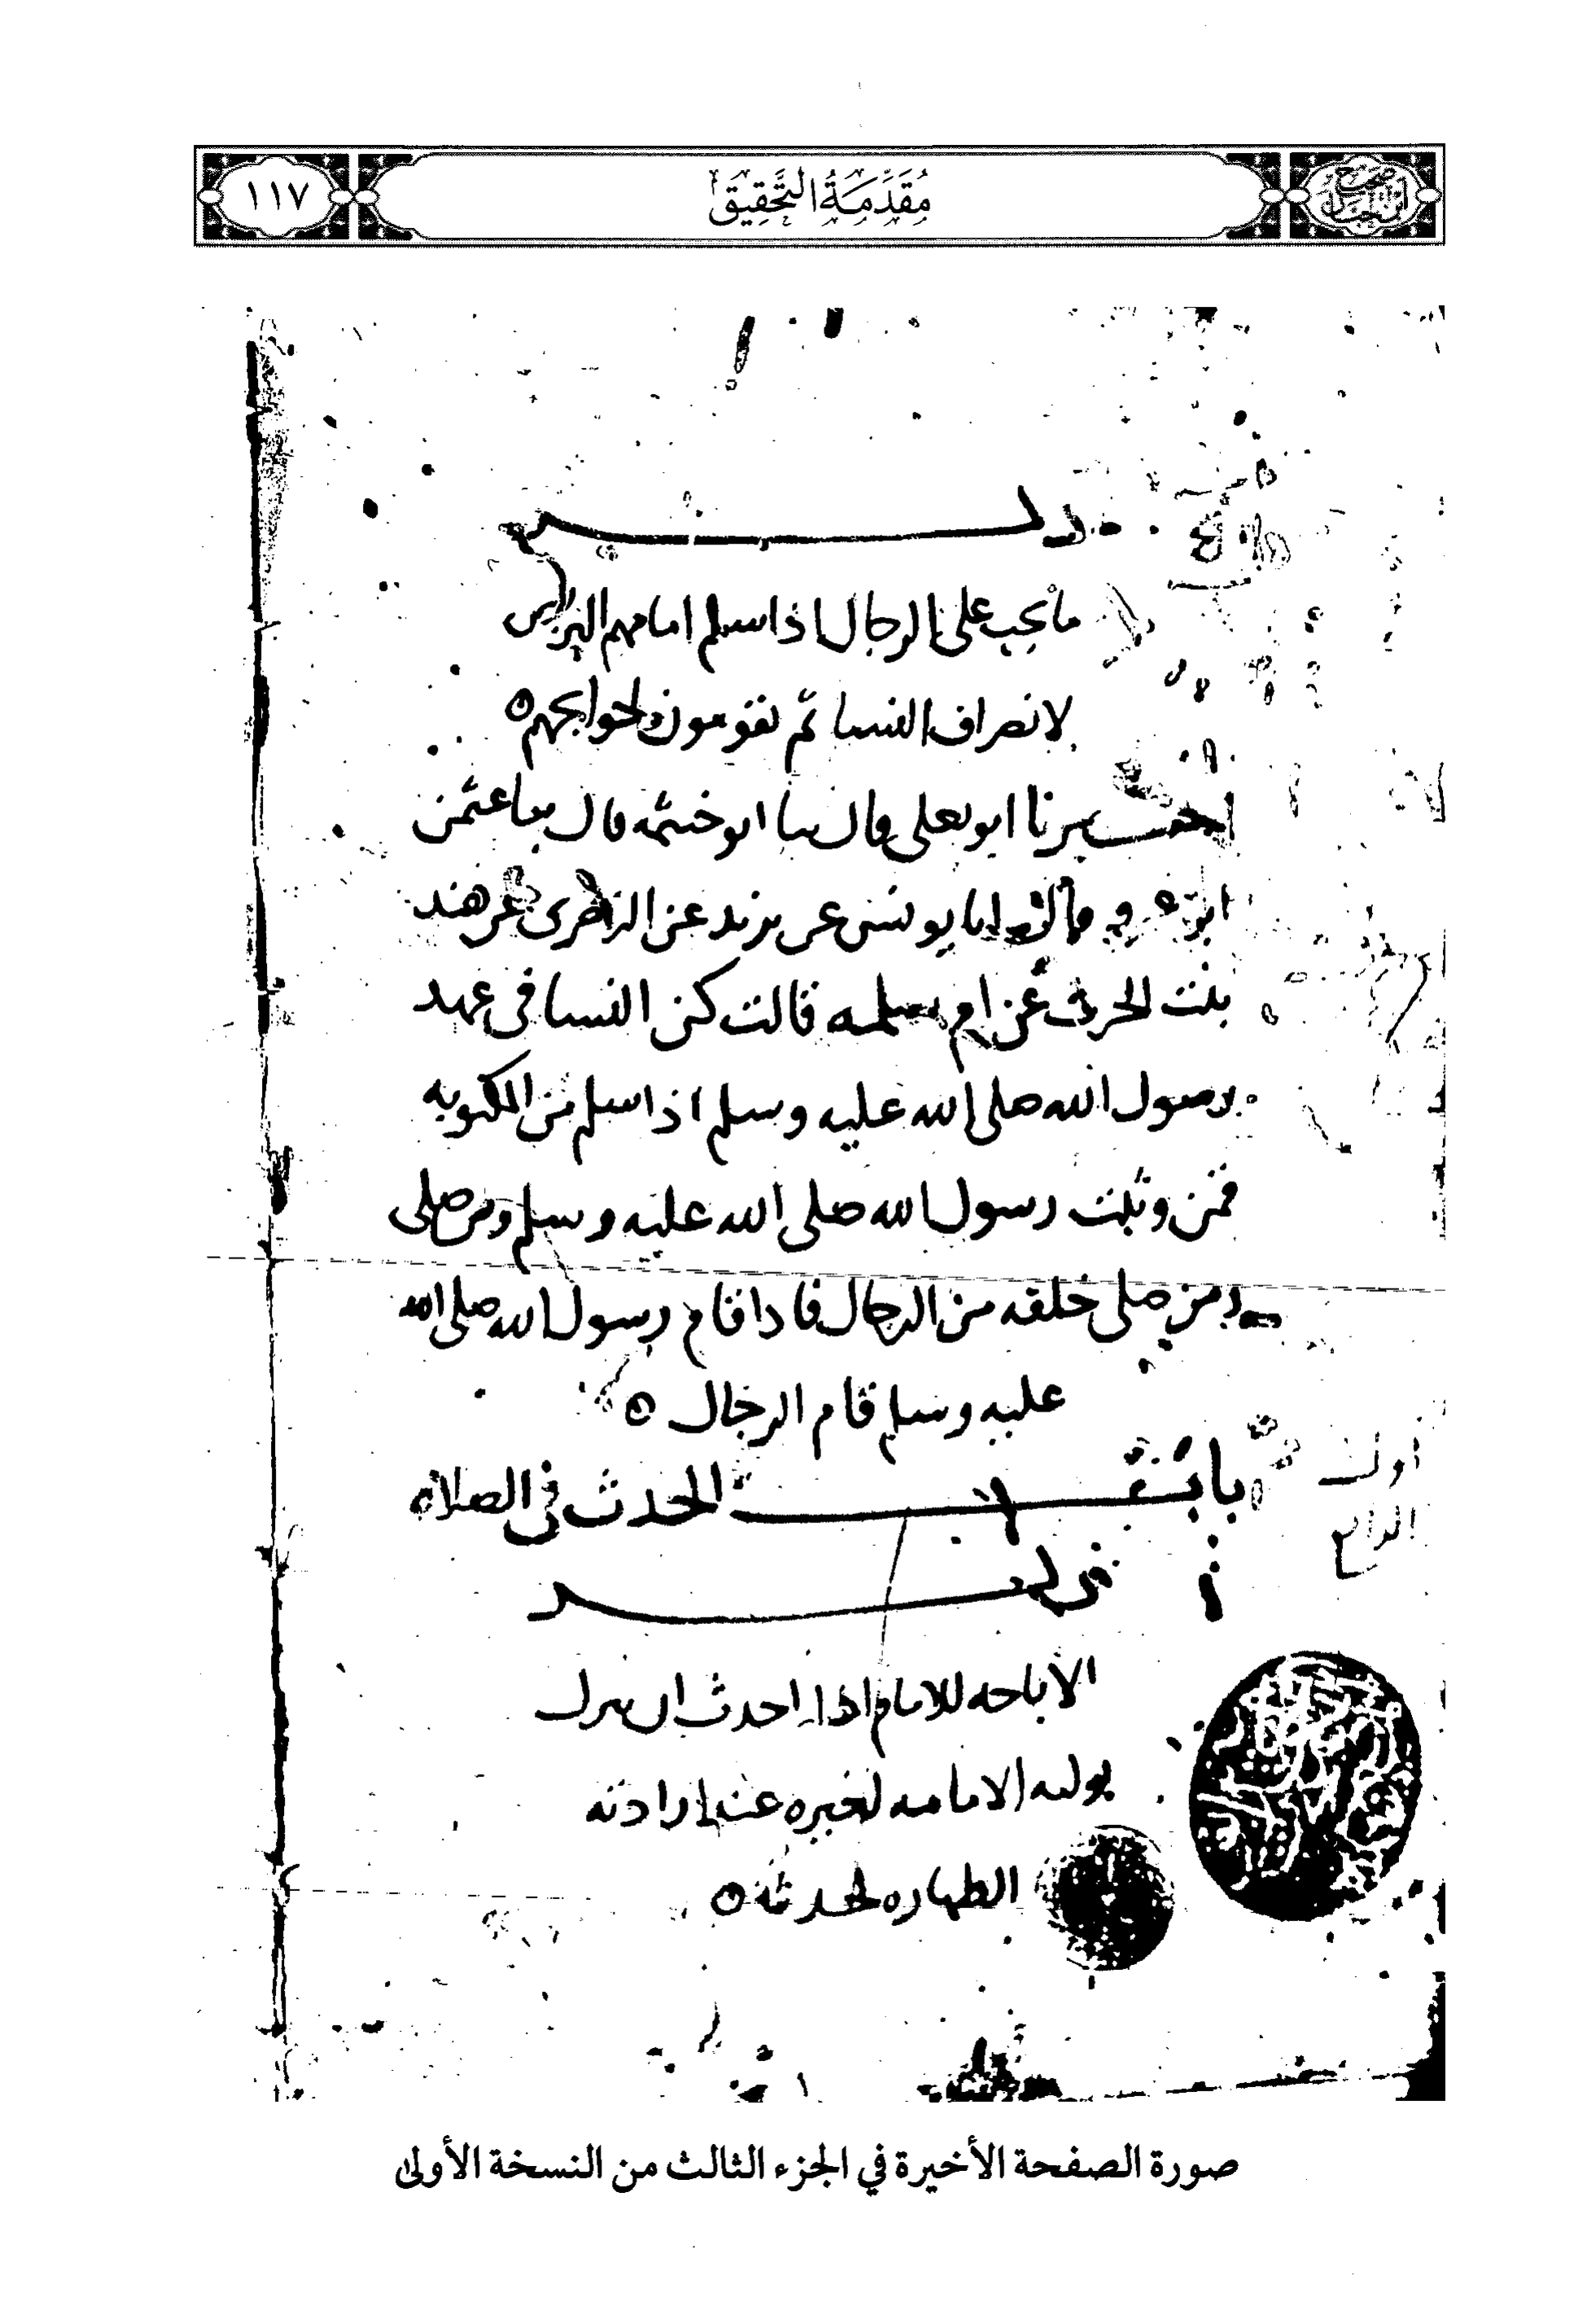 صحيح ابن حبان
مُقَدِّمَةُ التَّحْقِيق
١١٧
ذكر
ما يجب على الرجال اذا سلم امامهم التربص
لانصراف النسا ثم يقومون لحوايجهم
اخبرنا ابو يعلى قال ثنا ابو خيثمه قال ثنا عثمن
ابن عمر قال انا يونس بن يزيد عن الزهرى عن هند
بنت الحرث عن ام سلمه قالت كن النسا في عهد
رسول الله صلى الله عليه وسلم اذا سلم من المكتوبه
قمن وثبت رسول الله صلى الله عليه وسلم ومن صلى
ومن صلى خلفه من الرجال فاذا قام رسول الله صلى الله
عليه وسلم قام الرجال
باب الحدث في الصلاه
اول
الرابع
ذكر
الاباحه للامام اذا احدث ان يترك
توليه الامامه لغيره عند ارادته
الطهاره لحدثه
صورة الصفحة الأخيرة في الجزء الثالث من النسخة الأولى